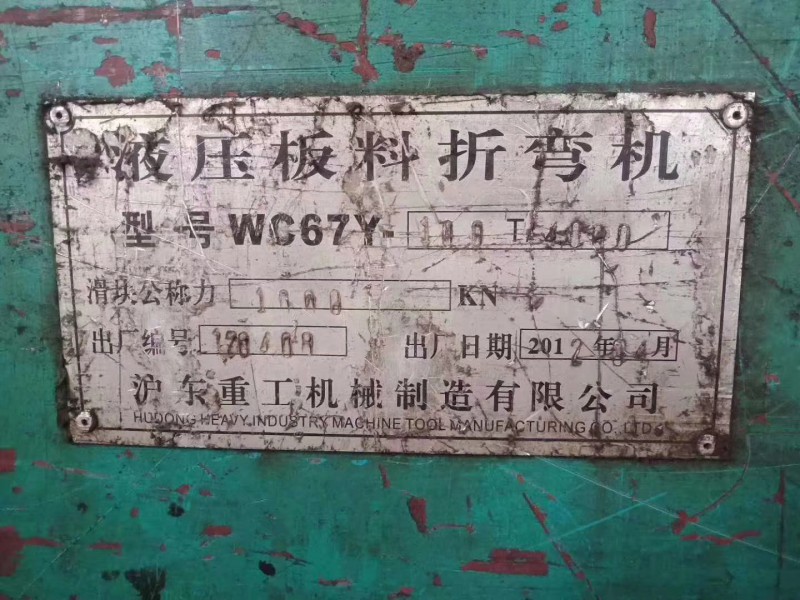 液压板料折弯机
型号 WC67Y-100T 4000
滑块公称力 1000 KN
出厂编号 出厂日期 2012年04月
沪东重工机械制造有限公司
HUDONG HEAVY INDUSTRY MACHINE TOOL MANUFACTURING CO., LTD